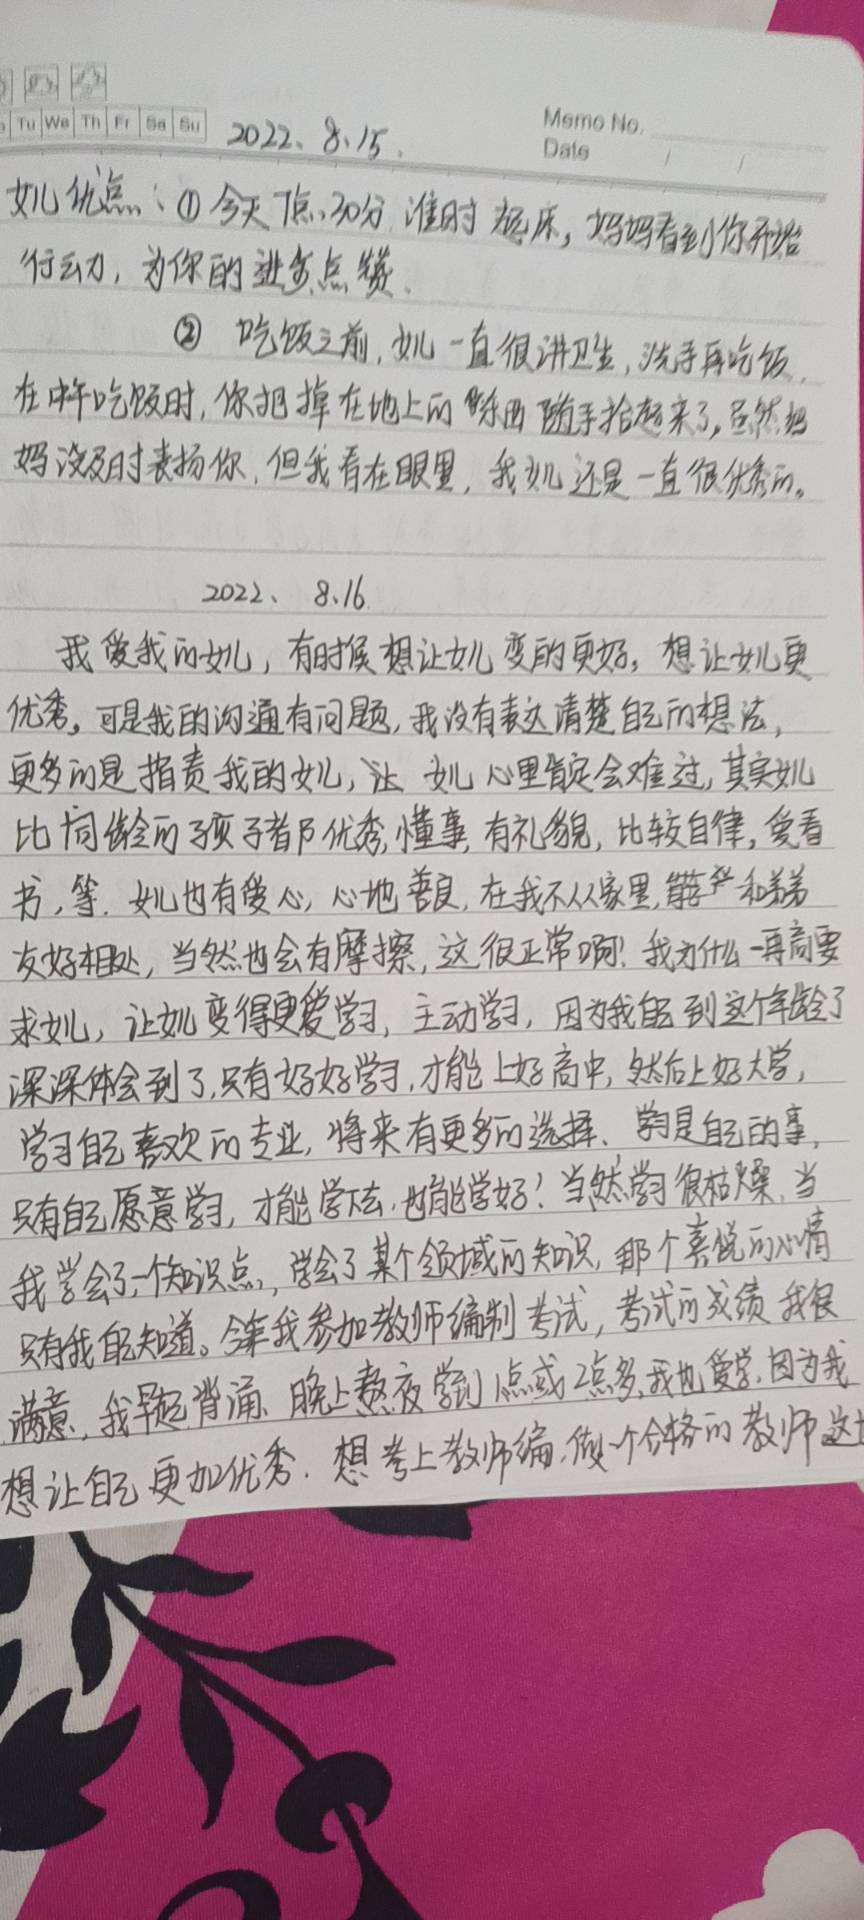 Tu We Th Fr Sa Su
Memo No.
Date / /
2022、8、15、
女儿优点：① 今天7点30分准时起床，妈妈看到你开始
行动，为你的进步点赞、
② 吃饭之前，女儿一直很讲卫生，洗手再吃饭，
在中午吃饭时，你把掉在地上的东西随手拾起来了，虽然妈
妈没及时表扬你，但我看在眼里，我女儿还是一直很优秀的。
2022、8、16
我爱我的女儿，有时候想让女儿变的更好，想让女儿更
优秀。可是我的沟通有问题，我没有表达清楚自己的想法，
更多的是指责我的女儿，让女儿心里肯定会难过，其实女儿
比同龄的孩子都优秀，懂事，有礼貌，比较自律，爱看
书，等．女儿也有爱心，心地善良，在我不从家里，能和弟弟
友好相处，当然也会有摩擦，这很正常啊！我为什么一再高要
求女儿，让女儿变得更爱学习，主动学习，因为我自己到这个年龄了
深深体会到了，只有好好学习，才能上好高中，然后上好大学，
学习自己喜欢的专业，将来有更多的选择、学习是自己的事，
只有自己愿意学习，才能学下去，也能学好！当然学习很枯燥，当
我学会了一个知识点，学会了某个领域的知识，那个喜悦的心情
只有我自己知道。今年我参加教师编制考试，考试的成绩我很
满意，我早起背诵、晚上熬夜学到1点或2点多，我也爱学，因为我
想让自己更加优秀．想考上教师编，做一个合格的教师 这也